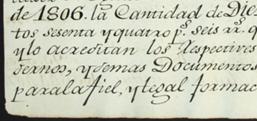 de 1806. la Cantidad de Diez
tos sesenta y quatro p.s seis rr.s q
y lo acreditan los Respectivos
dernos, y demas Documentos
para la fiel, y legal formac